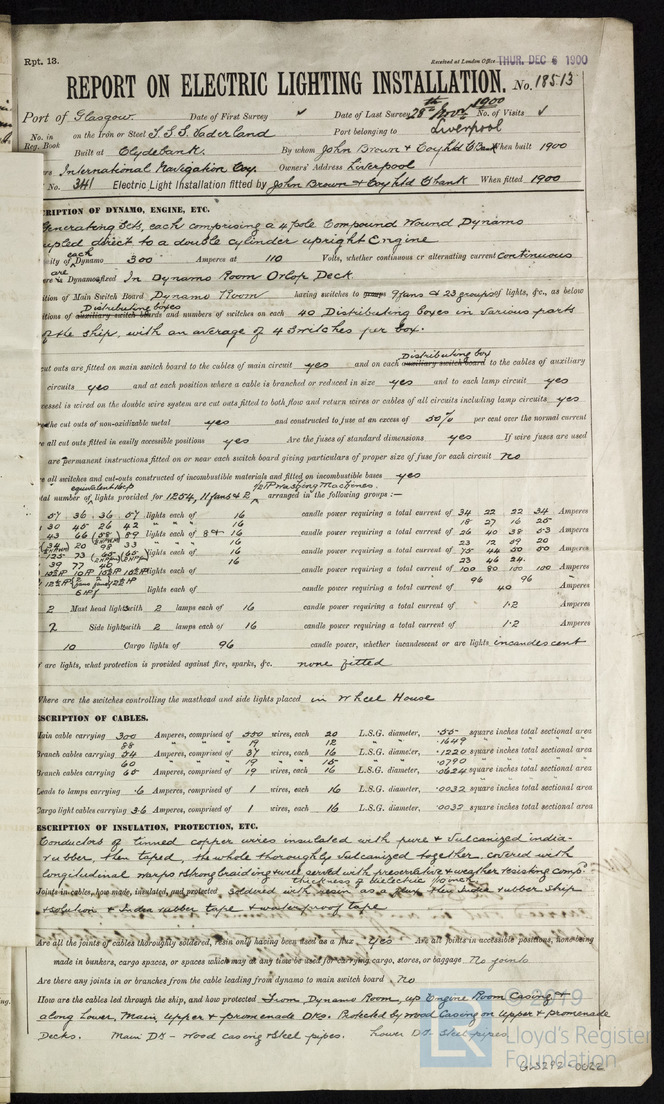 Rpt. 13.
Received at London Office THUR. DEC 6 1900
REPORT ON ELECTRIC LIGHTING INSTALLATION. No. 18513
Port of Glasgow. Date of First Survey Date of Last Survey 28th Nov 1900 No. of Visits
No. in Reg. Book on the Iron or Steel T.S.S. Vaderland Port belonging to Liverpool
Built at Clydebank. By whom John Brown & Coy Ltd C'Bank When built 1900
International Navigation Coy. Owners' Address Liverpool
No. 341 Electric Light Installation fitted by John Brown & Coy Ltd C'bank When fitted 1900
CRIPTION OF DYNAMO, ENGINE, ETC.
Generating Sets, each comprising a 4 pole Compound Wound Dynamo
upled direct to a double cylinder upright Engine
ity of each Dynamo 300 Amperes at 110 Volts, whether continuous or alternating current continuous
are Dynamos fixed In Dynamo Room Orlop Deck
ition of Main Switch Board Dynamo Room having switches to groups 9 fans & 23 groups of lights, &c., as below
Distributing boxes
itions of auxiliary switch boards and numbers of switches on each 40 Distributing Boxes in various parts
of the ship, with an average of 4 Switches per box.
cut outs are fitted on main switch board to the cables of main circuit yes and on each Distributing box auxiliary switch board to the cables of auxiliary
circuits yes and at each position where a cable is branched or reduced in size yes and to each lamp circuit yes
vessel is wired on the double wire system are cut outs fitted to both flow and return wires or cables of all circuits including lamp circuits yes
the cut outs of non-oxidizable metal yes and constructed to fuse at an excess of 50% per cent over the normal current
e all cut outs fitted in easily accessible positions yes Are the fuses of standard dimensions yes If wire fuses are used
are permanent instructions fitted on or near each switch board giving particulars of proper size of fuse for each circuit no
e all switches and cut-outs constructed of incombustible materials and fitted on incombustible bases yes
equivalent 16 cp Washing Machines.
tal number of lights provided for 1254, 11 fans & 2 arranged in the following groups :—
57 36 36 57 lights each of 16 candle power requiring a total current of 34 22 22 34 Amperes
30 45 26 42 16 18 27 16 25
43 66 58 89 lights each of 8 & 16 candle power requiring a total current of 26 40 38 53 Amperes
34 20 98 33 16 23 12 59 20
125 73 lights each of 16 candle power requiring a total current of 75 44 50 50 Amperes
39 77 40 16 23 46 24.
lights each of candle power requiring a total current of 100 80 100 100 Amperes
96 96
lights each of candle power requiring a total current of 40 Amperes
2 Mast head lights with 2 lamps each of 16 candle power requiring a total current of 1.2 Amperes
2 Side lights with 2 lamps each of 16 candle power requiring a total current of 1.2 Amperes
10 Cargo lights of 96 candle power, whether incandescent or arc lights incandescent
f arc lights, what protection is provided against fire, sparks, &c. none fitted
Where are the switches controlling the masthead and side lights placed in Wheel House
ESCRIPTION OF CABLES.
Main cable carrying 300 Amperes, comprised of wires, each 20 L.S.G. diameter, .55 square inches total sectional area
88 " 19 " 12 " .1649 "
Branch cables carrying 54 Amperes, comprised of 37 wires, each 16 L.S.G. diameter, .1220 square inches total sectional area
60 " 19 " 15 " .0790 "
Branch cables carrying 65 Amperes, comprised of 19 wires, each 16 L.S.G. diameter, .0624 square inches total sectional area
Leads to lamps carrying .6 Amperes, comprised of 1 wires, each 16 L.S.G. diameter, .0032 square inches total sectional area
Cargo light cables carrying 3.6 Amperes, comprised of 1 wires, each 16 L.S.G. diameter, .0032 square inches total sectional area
ESCRIPTION OF INSULATION, PROTECTION, ETC.
Conductors of tinned copper wires insulated with pure & vulcanized india-
rubber, then taped, the whole thoroughly vulcanized together, covered with
longitudinal warps & strong braiding & well served with preservative & weather resisting comp.
thickness of dielectric
Joints in cables, how made, insulated, and protected soldered with resin as a flux then India rubber strip
& solution & India rubber tape & waterproof tape
Are all the joints of cables thoroughly soldered, resin only having been used as a flux yes Are all joints in accessible positions, none being
made in bunkers, cargo spaces, or spaces which may at any time be used for carrying cargo, stores, or baggage No joints
Are there any joints in or branches from the cable leading from dynamo to main switch board No
How are the cables led through the ship, and how protected From Dynamo Room, up Engine Room Casing &
along Lower, Main, upper & promenade Dks. Protected by wood Casing on Upper & promenade
Decks. Main Dk - Wood casing & Steel pipes. Lower Dk - Steel pipes
© 2019
Lloyd's Register
Foundation
GLS292-0022